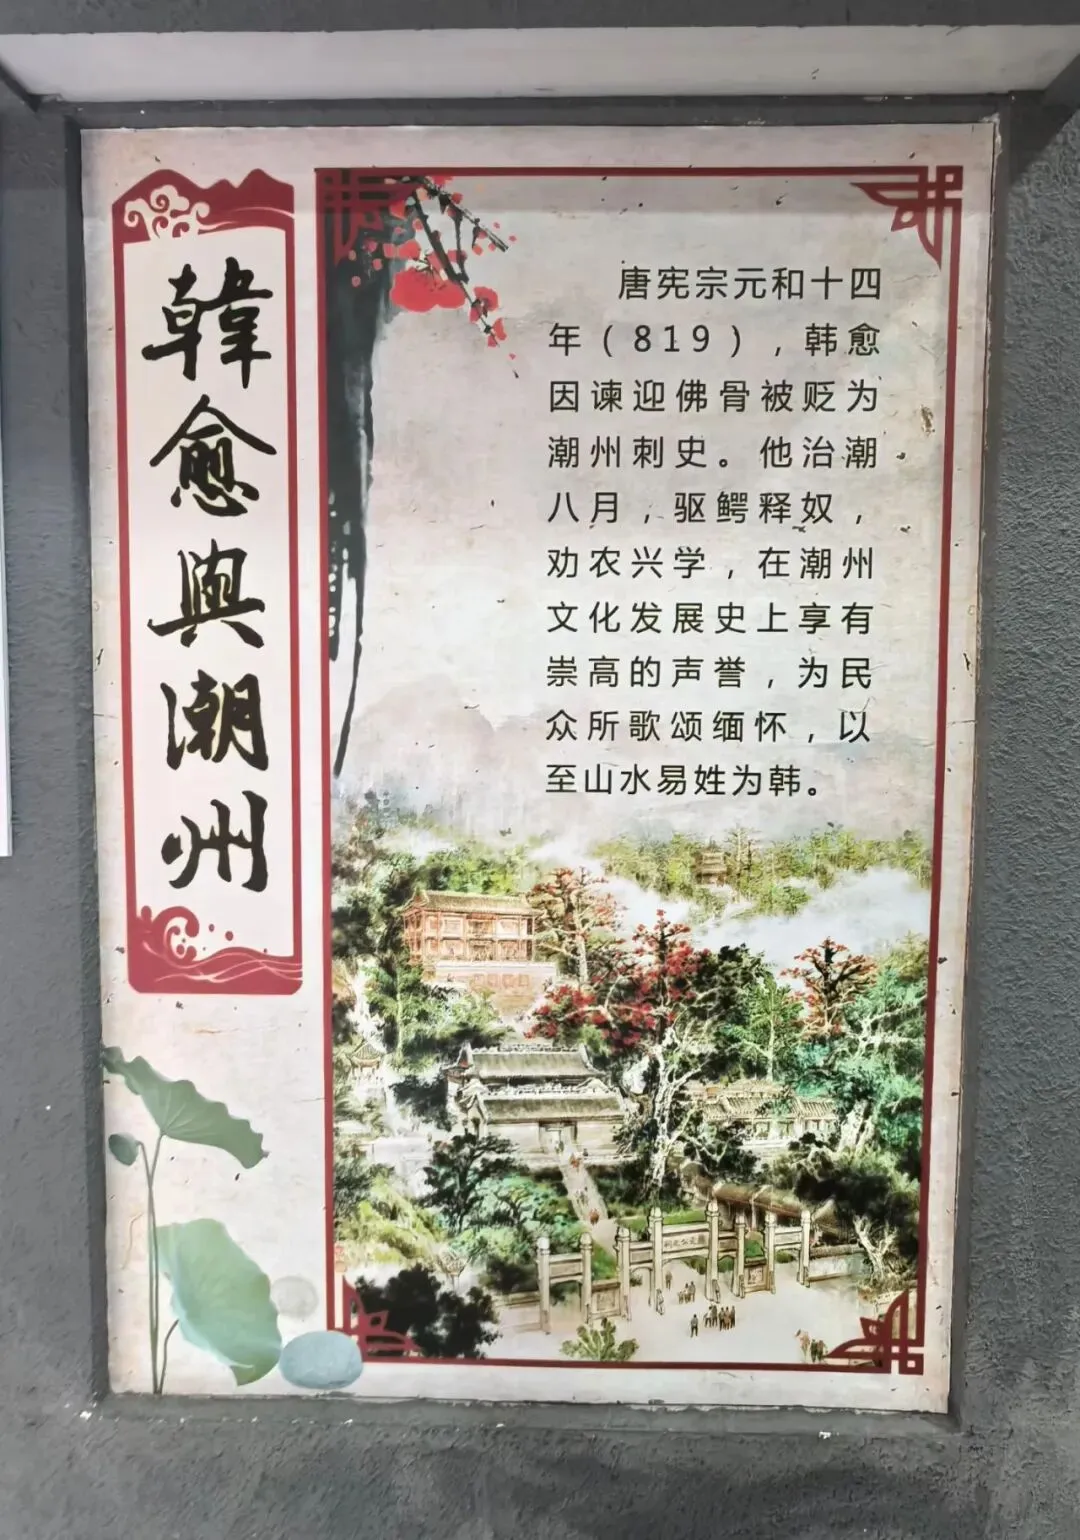 韓愈與潮州
唐宪宗元和十四
年（819），韩愈
因谏迎佛骨被贬为
潮州刺史。他治潮
八月，驱鳄释奴，
劝农兴学，在潮州
文化发展史上享有
崇高的声誉，为民
众所歌颂缅怀，以
至山水易姓为韩。